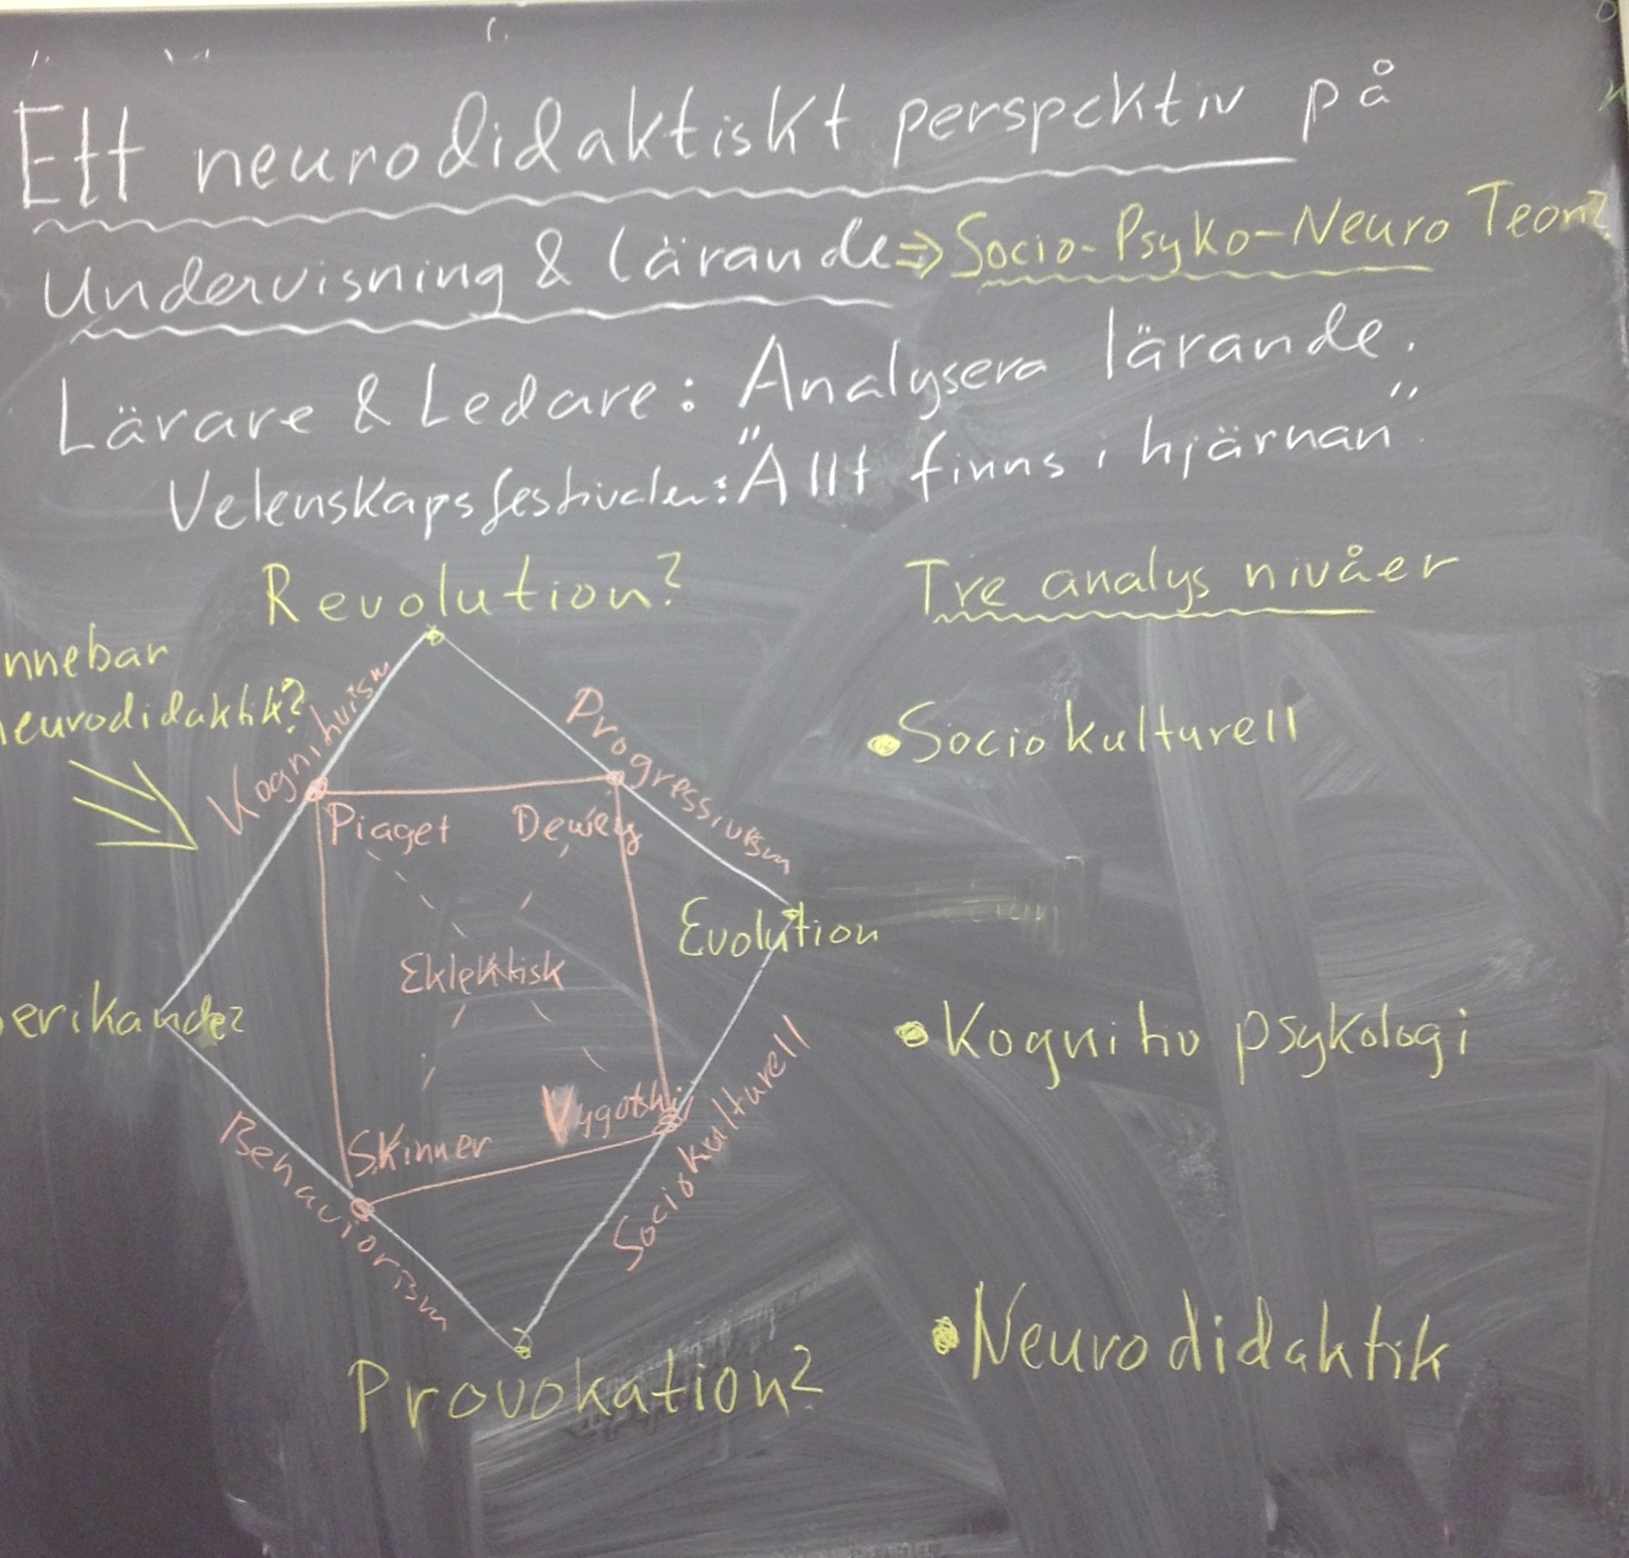 Ett neurodidaktiskt perspektiv på
Undervisning & lärande => Socio-Psyko-Neuro Teori?
Lärare & Ledare: Analysera lärande.
Vetenskapsfestivalen: "Allt finns i hjärnan".
Revolution?
Tre analys nivåer
nnebar
neurodidaktik?
Kognitivism
Progressivism
• Sociokulturell
Piaget
Dewey
Evolution
Eklektisk
erikande?
• Kognitiv psykologi
Vygotskij
Skinner
Behaviorism
Sociokulturell
• Neurodidaktik
Provokation?